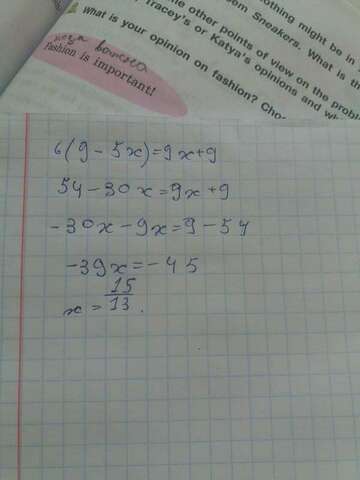 nothing might be in
Sneakers. What is th
me other points of view on the prob
Tracey's or Katya's opinions and wh
what is your opinion on fashion? Choo
fashion is important!
6(9-5x)=9x+9
54-30x=9x+9
-30x-9x=9-54
-39x=-45
x=15/13.